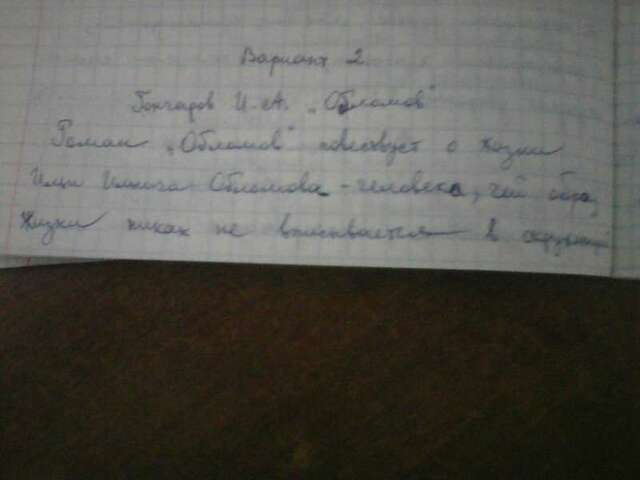 Вариант 2
Гончаров И.А. „Обломов"
Роман „Обломов" повествует о жизни
Ильи Ильича Обломова - человека, чей образ
жизни никак не вписывается в